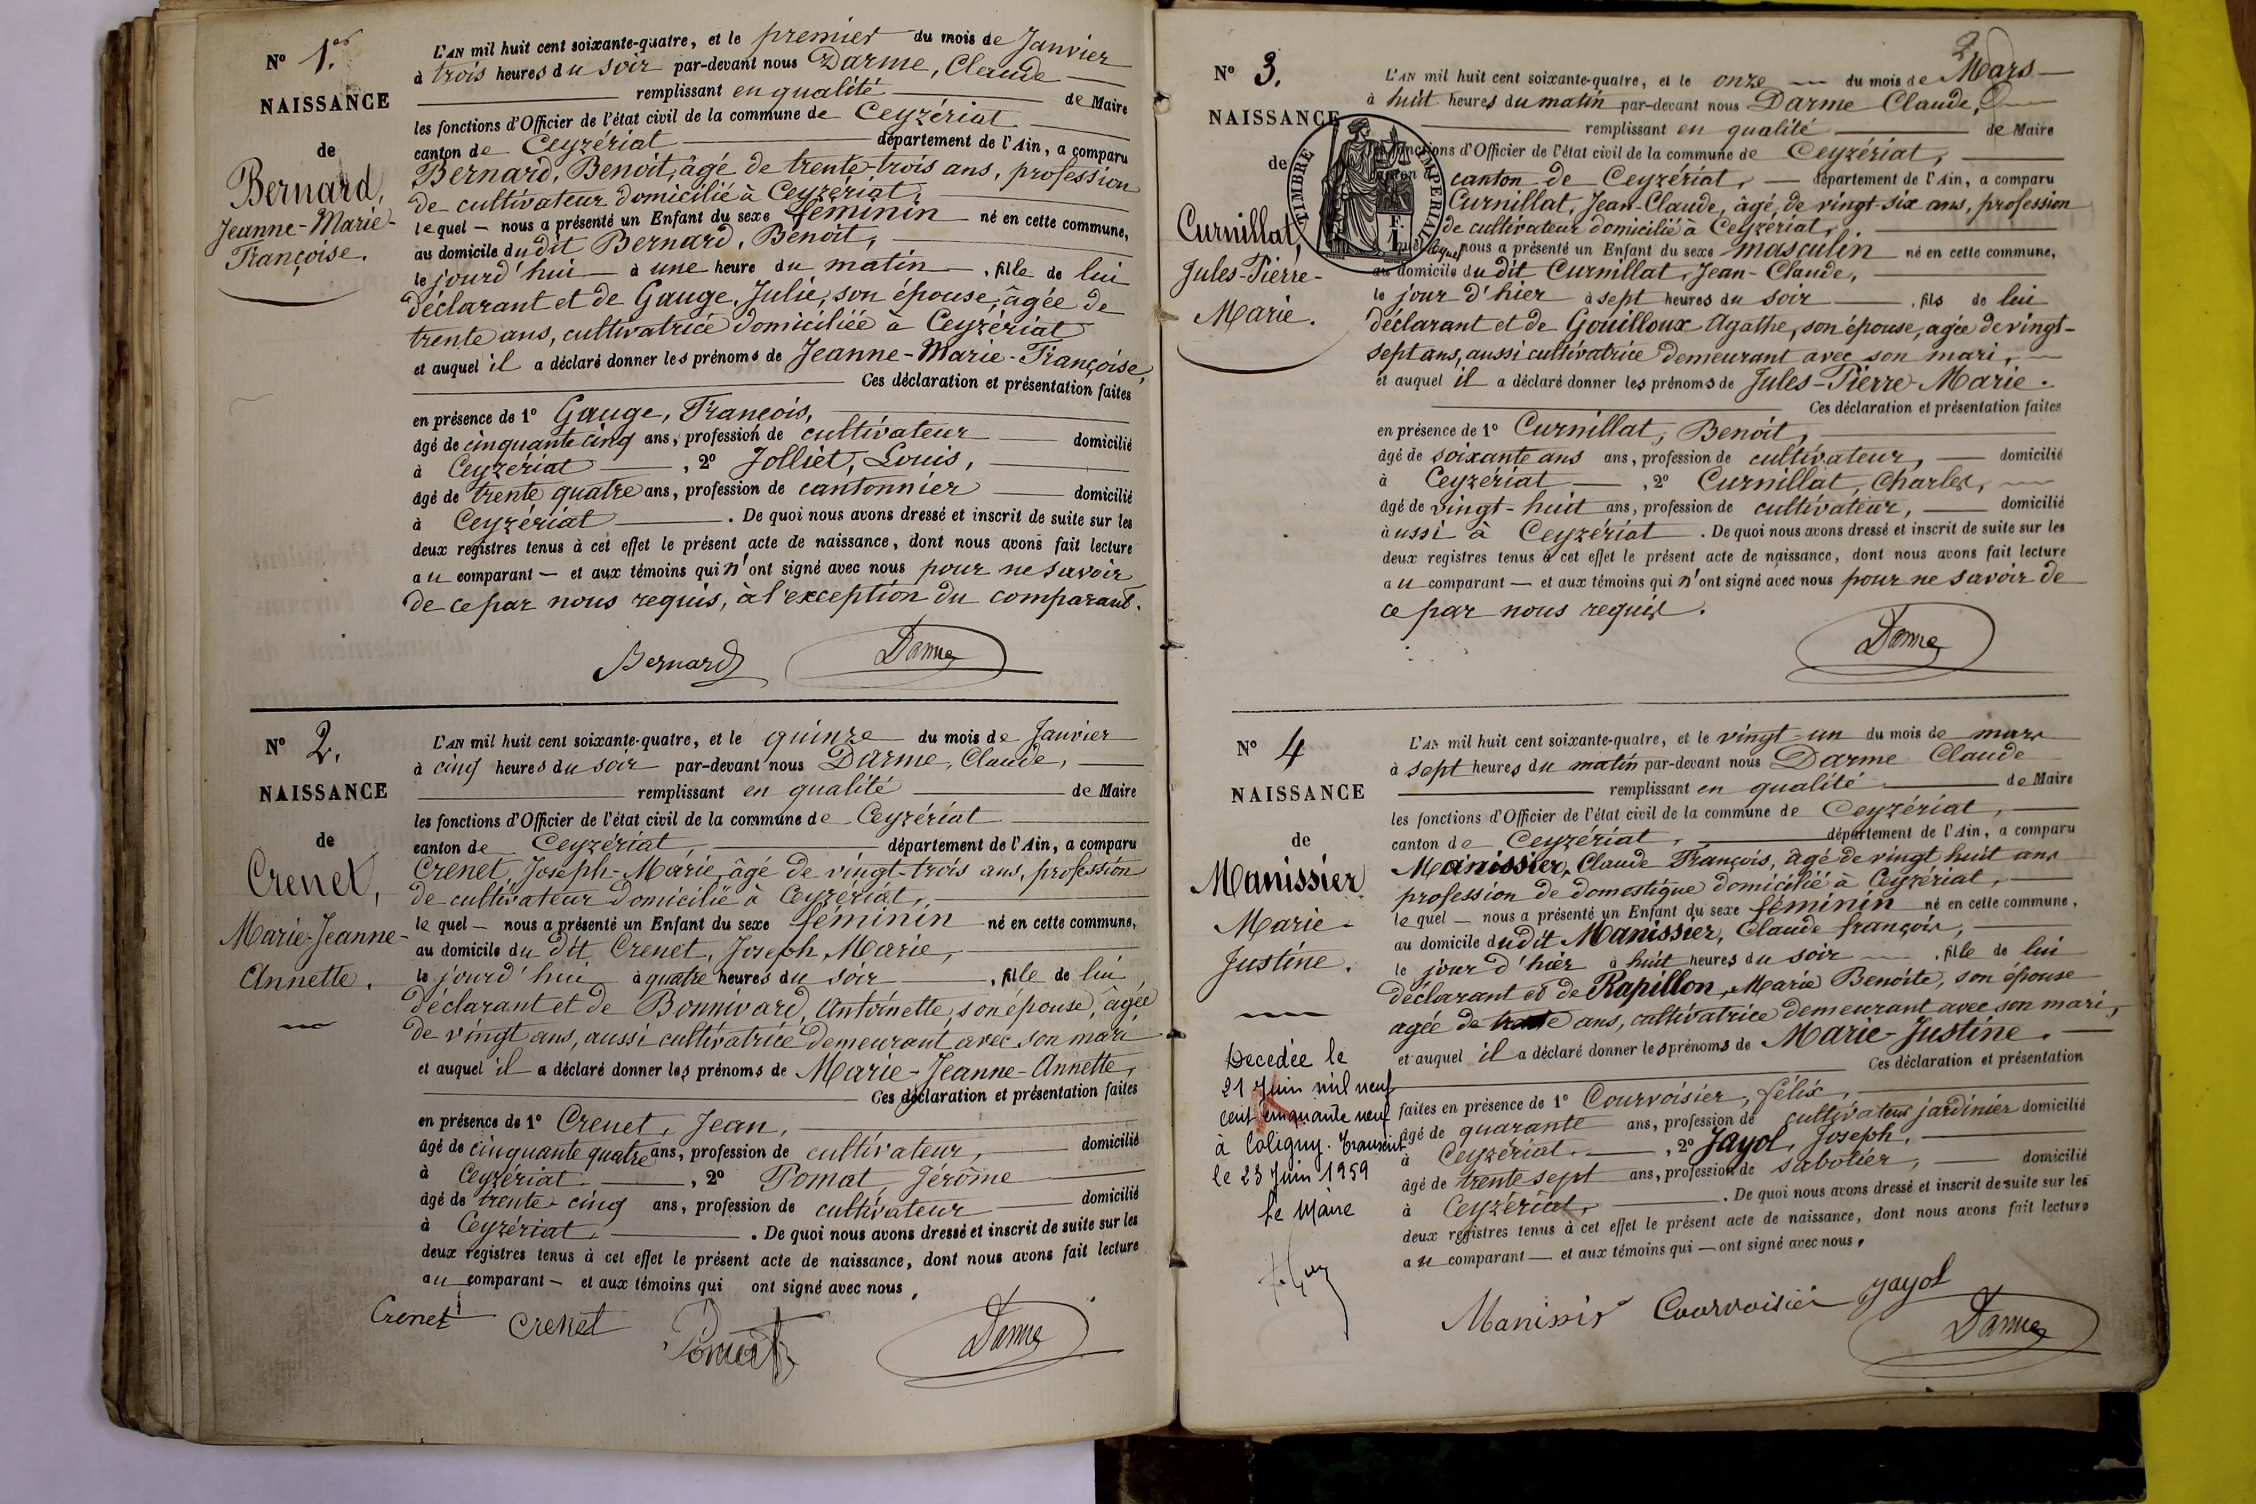 N° 1er
NAISSANCE
de
Bernard,
Jeanne-Marie-
Françoise.
L'AN mil huit cent soixante-quatre, et le premier du mois de Janvier
à trois heures du soir par-devant nous Darme, Claude
remplissant en qualité de Maire
les fonctions d'Officier de l'état civil de la commune de Ceyzériat
canton de Ceyzériat département de l'Ain, a comparu
Bernard, Benoit, âgé de trente-trois ans, profession
de cultivateur domicilié à Ceyzériat,
lequel — nous a présenté un Enfant du sexe féminin né en cette commune,
au domicile dudit Bernard, Benoit,
le jourd'hui à une heure du matin, fille de lui
déclarant et de Gauge, Julie, son épouse, âgée de
trente ans, cultivatrice domiciliée à Ceyzériat
et auquel il a déclaré donner les prénoms de Jeanne-Marie-Françoise,
Ces déclaration et présentation faites
en présence de 1° Gauge, François,
âgé de cinquante cinq ans, profession de cultivateur domicilié
à Ceyzériat, 2° Jolliet, Louis,
âgé de trente quatre ans, profession de cantonnier domicilié
à Ceyzériat. De quoi nous avons dressé et inscrit de suite sur les
deux registres tenus à cet effet le présent acte de naissance, dont nous avons fait lecture
au comparant — et aux témoins qui n'ont signé avec nous pour ne savoir
de ce par nous requis, à l'exception du comparant.
Bernard Darme
N° 2.
NAISSANCE
de
Crenet,
Marie-Jeanne-
Annette.
L'AN mil huit cent soixante-quatre, et le quinze du mois de Janvier
à cinq heures du soir par-devant nous Darme, Claude,
remplissant en qualité de Maire
les fonctions d'Officier de l'état civil de la commune de Ceyzériat
canton de Ceyzériat, département de l'Ain, a comparu
Crenet, Joseph-Marie, âgé de vingt-trois ans, profession
de cultivateur domicilié à Ceyzériat,
lequel — nous a présenté un Enfant du sexe féminin né en cette commune,
au domicile du dit Crenet, Joseph Marie,
le jourd'hui à quatre heures du soir, fille de lui
déclarant et de Bonnivard, Antoinette, son épouse, âgée
de vingt ans, aussi cultivatrice demeurant avec son mari
et auquel il a déclaré donner les prénoms de Marie-Jeanne-Annette,
Ces déclaration et présentation faites
en présence de 1° Crenet, Jean,
âgé de cinquante quatre ans, profession de cultivateur, domicilié
à Ceyzériat, 2° Pomat, Jérôme
âgé de trente cinq ans, profession de cultivateur domicilié
à Ceyzériat. De quoi nous avons dressé et inscrit de suite sur les
deux registres tenus à cet effet le présent acte de naissance, dont nous avons fait lecture
au comparant — et aux témoins qui ont signé avec nous.
Crenet Crenet Pomat Darme
2
N° 3.
NAISSANCE
de
Curnillat,
Jules-Pierre-
Marie.
TIMBRE IMPERIAL
L'AN mil huit cent soixante-quatre, et le onze du mois de Mars
à huit heures du matin par-devant nous Darme Claude,
remplissant en qualité de Maire
fonctions d'Officier de l'état civil de la commune de Ceyzériat,
canton de Ceyzériat, département de l'Ain, a comparu
Curnillat, Jean-Claude, âgé, de vingt-six ans, profession
de cultivateur domicilié à Ceyzériat,
lequel nous a présenté un Enfant du sexe masculin né en cette commune,
au domicile du dit Curnillat, Jean-Claude,
le jour d'hier à sept heures du soir, fils de lui
déclarant et de Gouilloux Agathe, son épouse, agée de vingt-
sept ans, aussi cultivatrice demeurant avec son mari,
et auquel il a déclaré donner les prénoms de Jules-Pierre-Marie.
Ces déclaration et présentation faites
en présence de 1° Curnillat, Benoit,
âgé de soixante ans ans, profession de cultivateur, domicilié
à Ceyzériat, 2° Curnillat, Charles,
âgé de vingt-huit ans, profession de cultivateur, domicilié
aussi à Ceyzériat. De quoi nous avons dressé et inscrit de suite sur les
deux registres tenus à cet effet le présent acte de naissance, dont nous avons fait lecture
au comparant — et aux témoins qui n'ont signé avec nous pour ne savoir de
ce par nous requis.
Darme
N° 4
NAISSANCE
de
Manissier
Marie-
Justine.
Decedée le
21 Juin mil neuf
cent cinquante neuf
à Coligny. Transcrit
le 23 Juin 1959
Le Maire
L'AN mil huit cent soixante-quatre, et le vingt-un du mois de mars
à sept heures du matin par-devant nous Darme Claude
remplissant en qualité de Maire
les fonctions d'Officier de l'état civil de la commune de Ceyzériat,
canton de Ceyzériat, département de l'Ain, a comparu
Manissier, Claude François, âgé de vingt huit ans
profession de domestique domicilié à Ceyzériat,
lequel — nous a présenté un Enfant du sexe féminin né en cette commune,
au domicile dudit Manissier, Claude françois,
le jour d'hier à huit heures du soir, fille de lui
déclarant et de Rapillon, Marie Benoite, son épouse
agée de trente ans, cultivatrice demeurant avec son mari,
et auquel il a déclaré donner les prénoms de Marie-Justine.
Ces déclaration et présentation
faites en présence de 1° Courvoisier, félix,
âgé de quarante ans, profession de cultivateur jardinier domicilié
à Ceyzériat, 2° Jayol, Joseph,
âgé de trente sept ans, profession de sabotier, domicilié
à Ceyzériat, . De quoi nous avons dressé et inscrit de suite sur les
deux registres tenus à cet effet le présent acte de naissance, dont nous avons fait lecture
au comparant — et aux témoins qui — ont signé avec nous.
Manissier Courvoisier Jayol
Darme